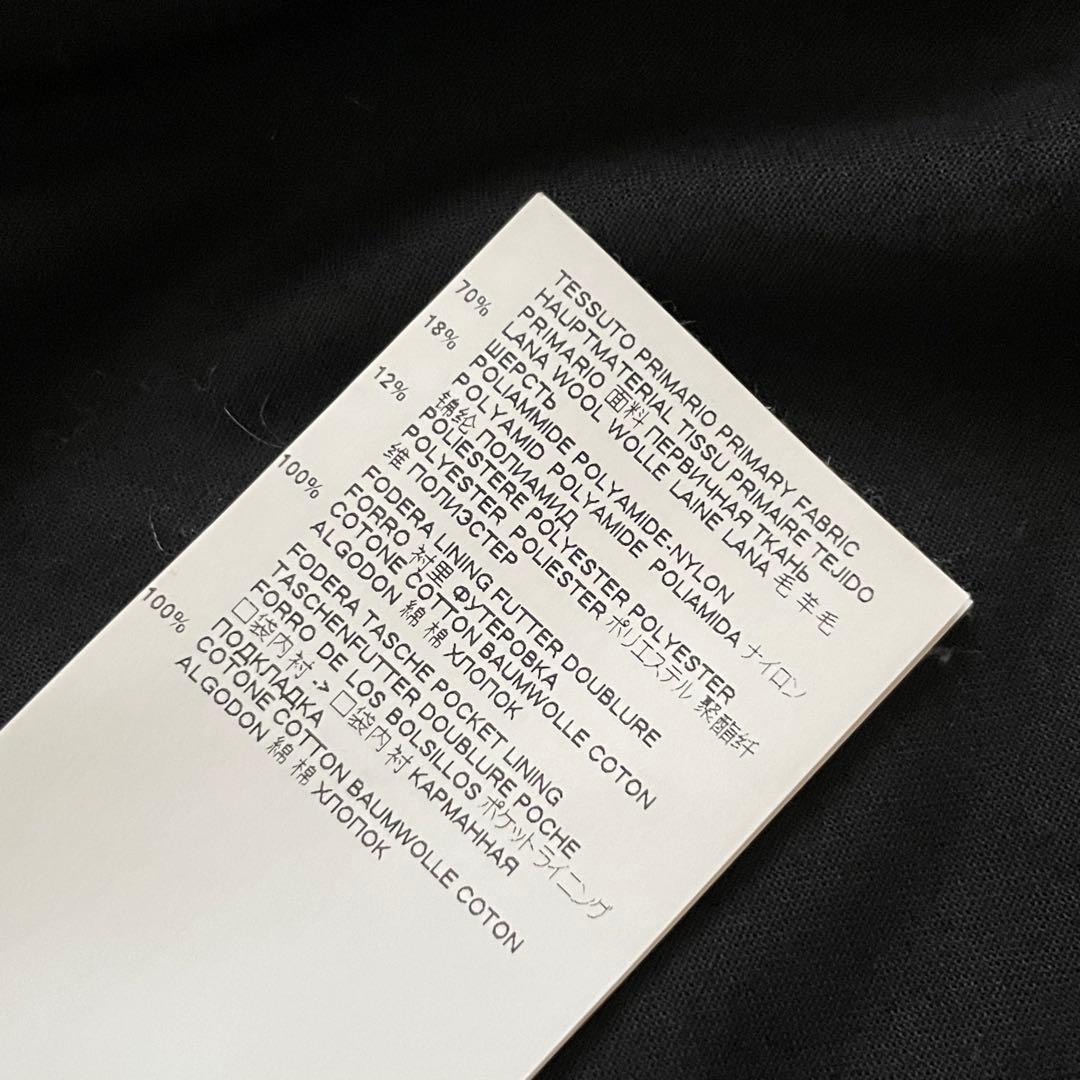 TESSUTO PRIMARIO PRIMARY FABRIC
HAUPTMATERIAL TISSU PRIMAIRE TEJIDO
PRIMARIO 面料 ПЕРВИЧНАЯ ТКАНЬ
70% LANA WOOL WOLLE LAINE LANA 毛 羊毛
ШЕРСТЬ
18% POLIAMMIDE POLYAMIDE-NYLON
POLYAMID POLYAMIDE POLIAMIDA ナイロン
锦纶 ПОЛИАМИД
12% POLIESTERE POLYESTER POLYESTER
POLYESTER POLIESTER ポリエステル 聚酯纤
维 ПОЛИЭСТЕР
FODERA LINING FUTTER DOUBLURE
FORRO 衬里 ФУТЕРОВКА
100% COTONE COTTON BAUMWOLLE COTON
ALGODON 綿 棉 ХЛОПОК
FODERA TASCHE POCKET LINING
TASCHENFUTTER DOUBLURE POCHE
FORRO DE LOS BOLSILLOS ポケットライニング
□袋内衬 .> □袋内衬 КАРМАННАЯ
ПОДКЛАДКА
100% COTONE COTTON BAUMWOLLE COTON
ALGODON 綿 棉 ХЛОПОК